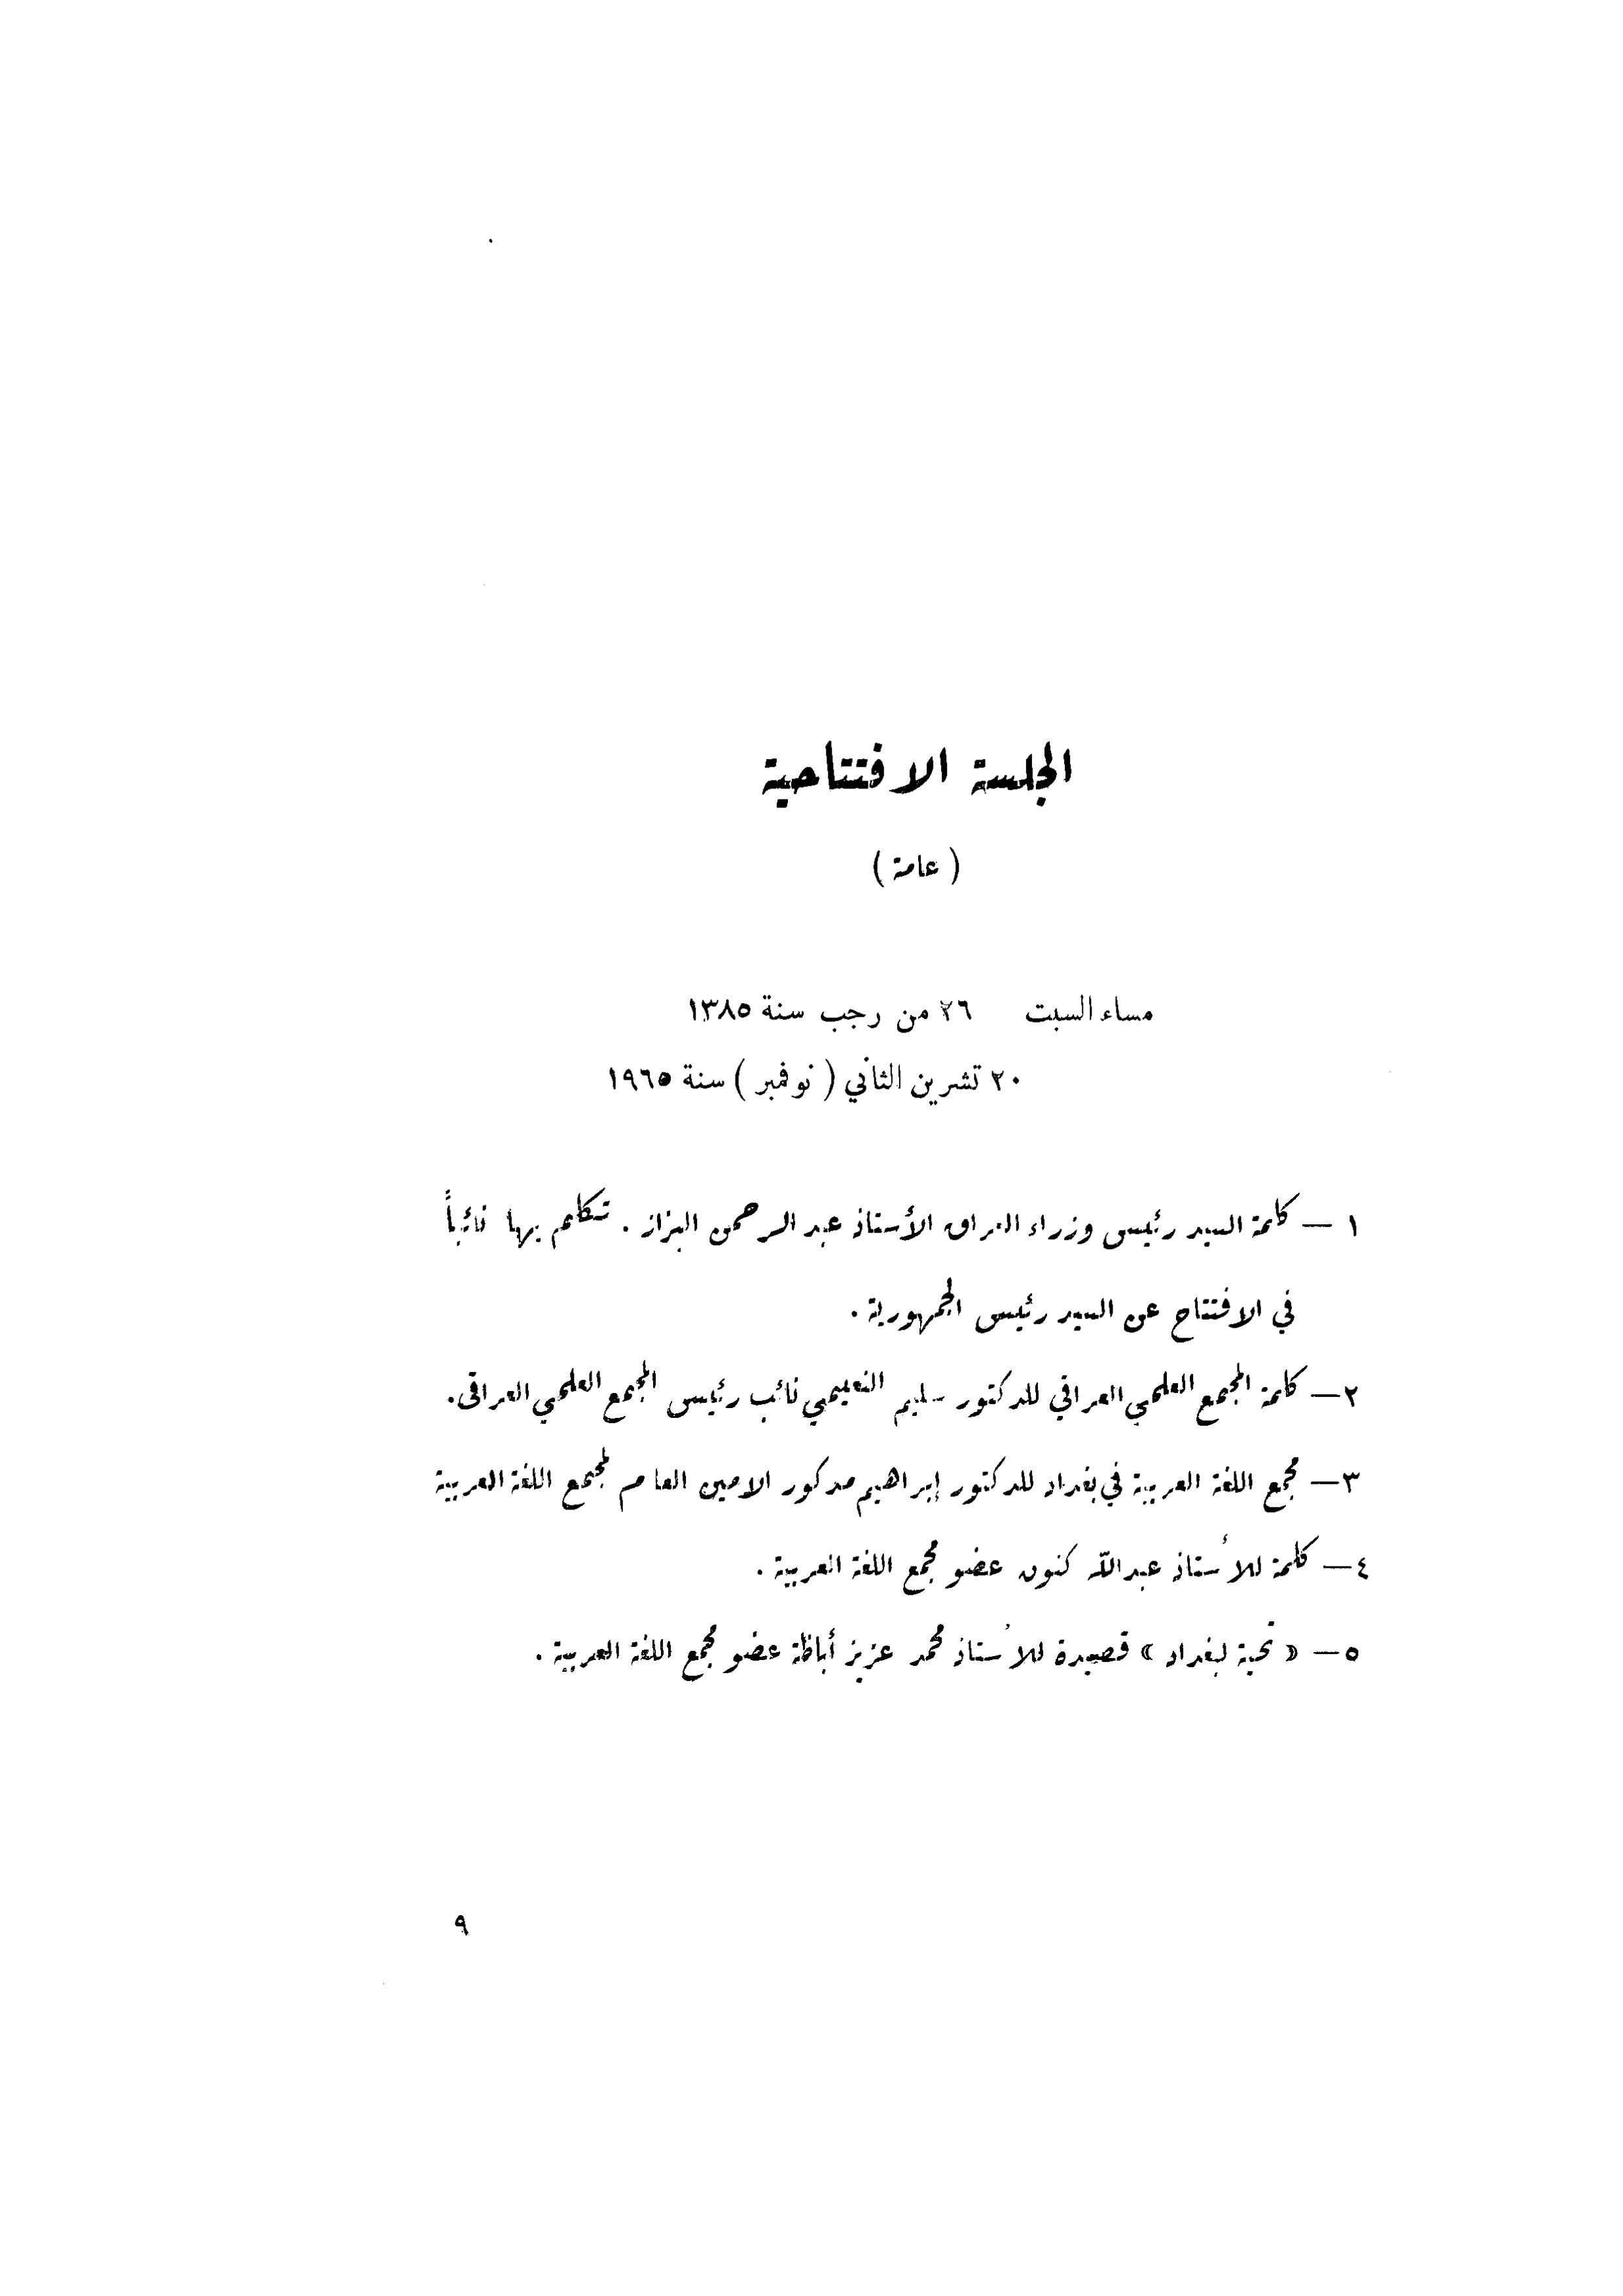 الجلسة الافتتاحية
( عامة )
مساء السبت ٢٦ من رجب سنة ١٣٨٥
٢٠ تشرين الثاني ( نوفمبر ) سنة ١٩٦٥
١ — كلمة السيد رئيس وزراء العراق الأستاذ عبد الرحمن البزاز . تكلم بها نائباً
في الافتتاح عن السيد رئيس الجمهورية .
٢ — كلمة المجمع العلمي العراقي للدكتور سليم النعيمي نائب رئيس المجمع العلمي العراقي .
٣ — مجمع اللغة العربية في بغداد للدكتور إبراهيم مدكور الامين العام لمجمع اللغة العربية
٤ — كلمة للأستاذ عبد الله كنون عضو مجمع اللغة العربية .
٥ — « تحية لبغداد » قصيدة للأستاذ محمد عزيز أباظة عضو مجمع اللغة العربية .
٩